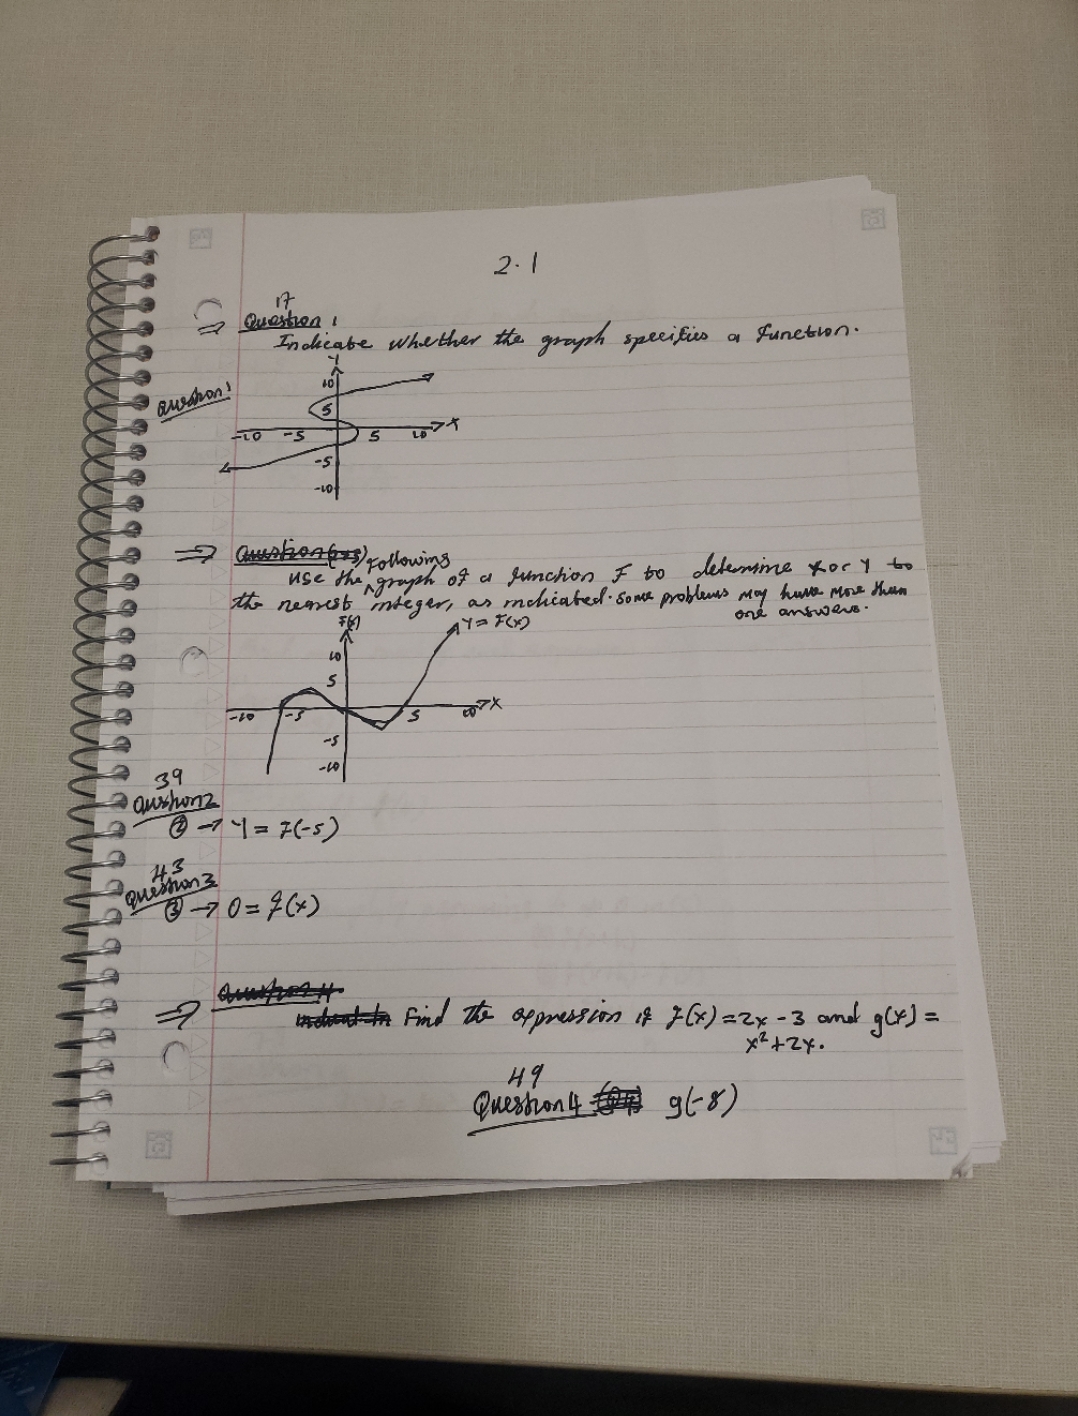 2.1
17
⇒ Question 1
Indicate whether the graph specifies a function.
Question 1
Y
10
5
-10 -5 5 10 X
-5
-10
⇒ Following
use the graph of a function F to determine x or y to
the nearest integer, as indicated. Some problems may have more than
one answers.
F(x)
Y = F(x)
10
5
-10 -5 5 10 X
-5
-10
39
Question 2
② → Y = F(-5)
43
Question 3
③ → 0 = f(x)
⇒ Find the expression if f(x) = 2x - 3 and g(x) =
x² + 2x.
49
Question 4 g(-8)